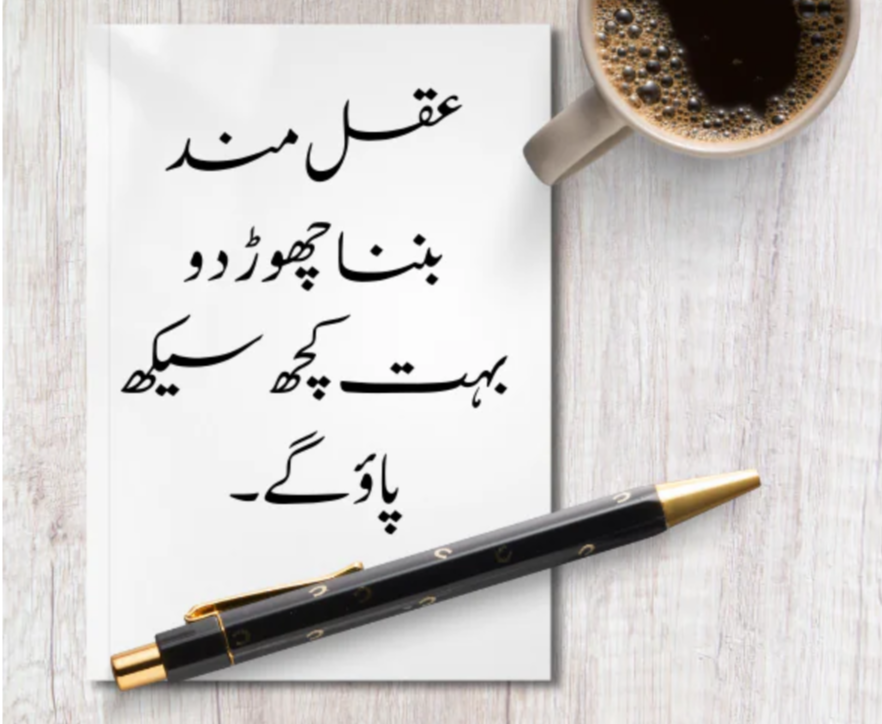 عقل مند
بننا چھوڑ دو
بہت کچھ سیکھ
پاؤ گے۔